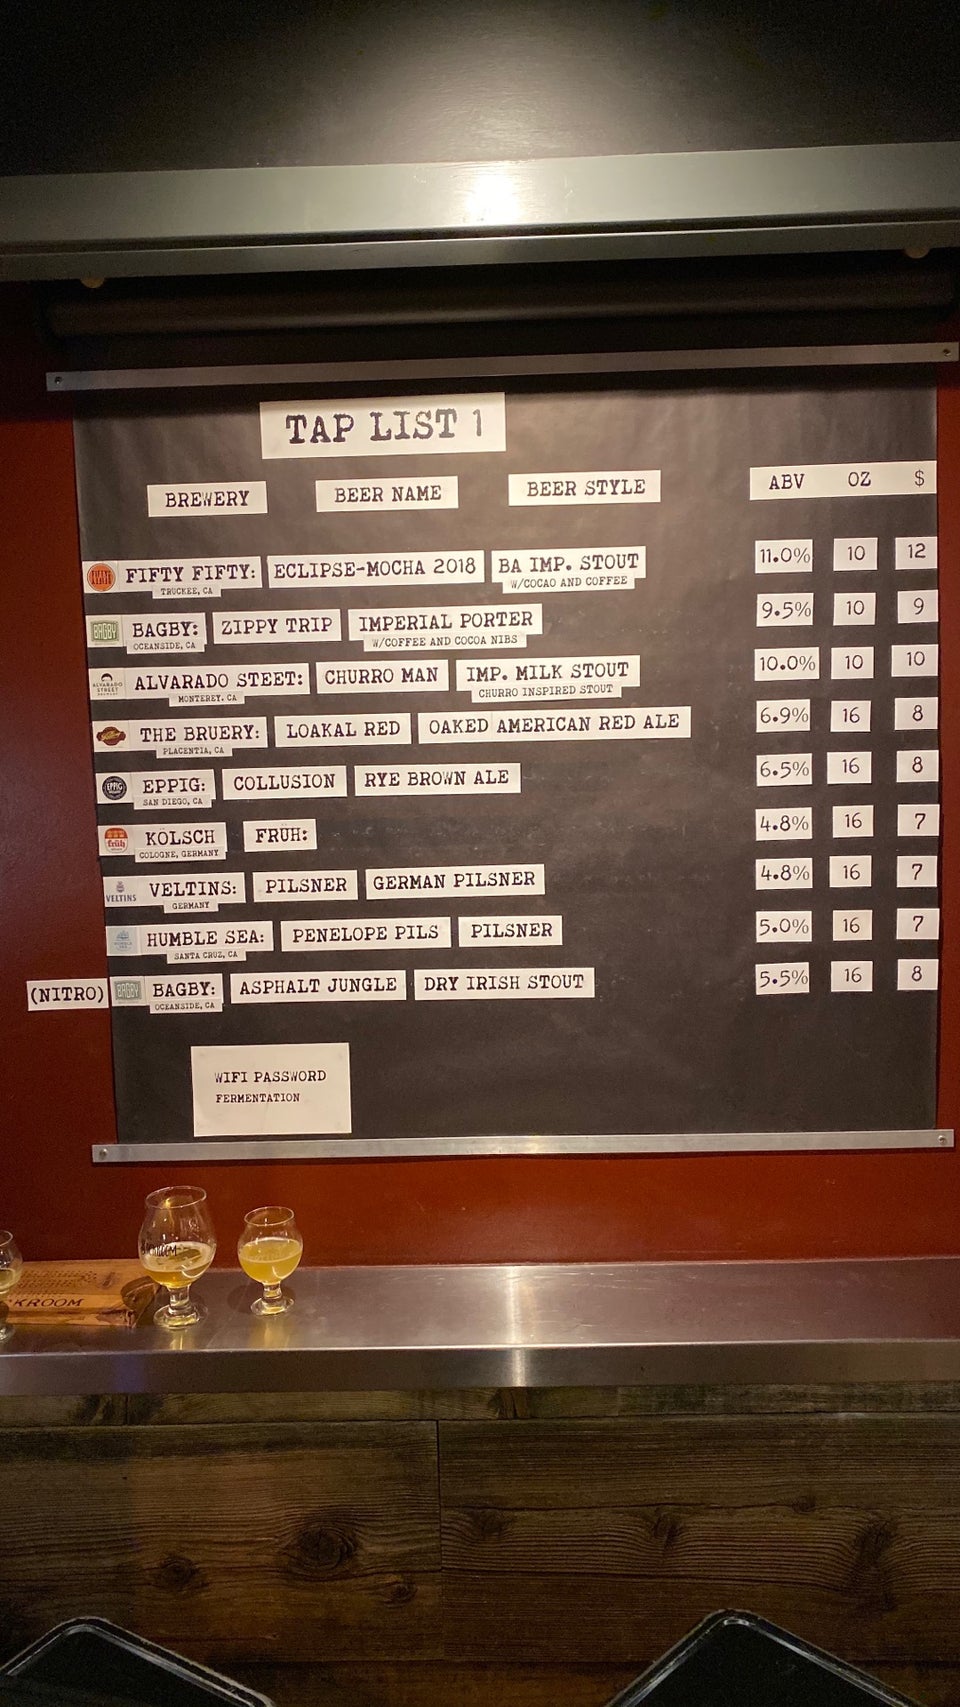 TAP LIST 1
BREWERY BEER NAME BEER STYLE ABV OZ $
FIFTY FIFTY: ECLIPSE-MOCHA 2018 BA IMP. STOUT 11.0% 10 12
TRUCKEE, CA W/COCAO AND COFFEE
BAGBY BAGBY: ZIPPY TRIP IMPERIAL PORTER 9.5% 10 9
OCEANSIDE, CA W/COFFEE AND COCOA NIBS
ALVARADO STREET ALVARADO STEET: CHURRO MAN IMP. MILK STOUT 10.0% 10 10
MONTEREY. CA CHURRO INSPIRED STOUT
THE BRUERY: LOAKAL RED OAKED AMERICAN RED ALE 6.9% 16 8
PLACENTIA, CA
EPPIG EPPIG: COLLUSION RYE BROWN ALE 6.5% 16 8
SAN DIEGO, CA
früh KÖLSCH FRÜH: 4.8% 16 7
COLOGNE, GERMANY
VELTINS VELTINS: PILSNER GERMAN PILSNER 4.8% 16 7
GERMANY
HUMBLE SEA HUMBLE SEA: PENELOPE PILS PILSNER 5.0% 16 7
SANTA CRUZ, CA
(NITRO) BAGBY BAGBY: ASPHALT JUNGLE DRY IRISH STOUT 5.5% 16 8
OCEANSIDE, CA
WIFI PASSWORD
FERMENTATION
KROOM